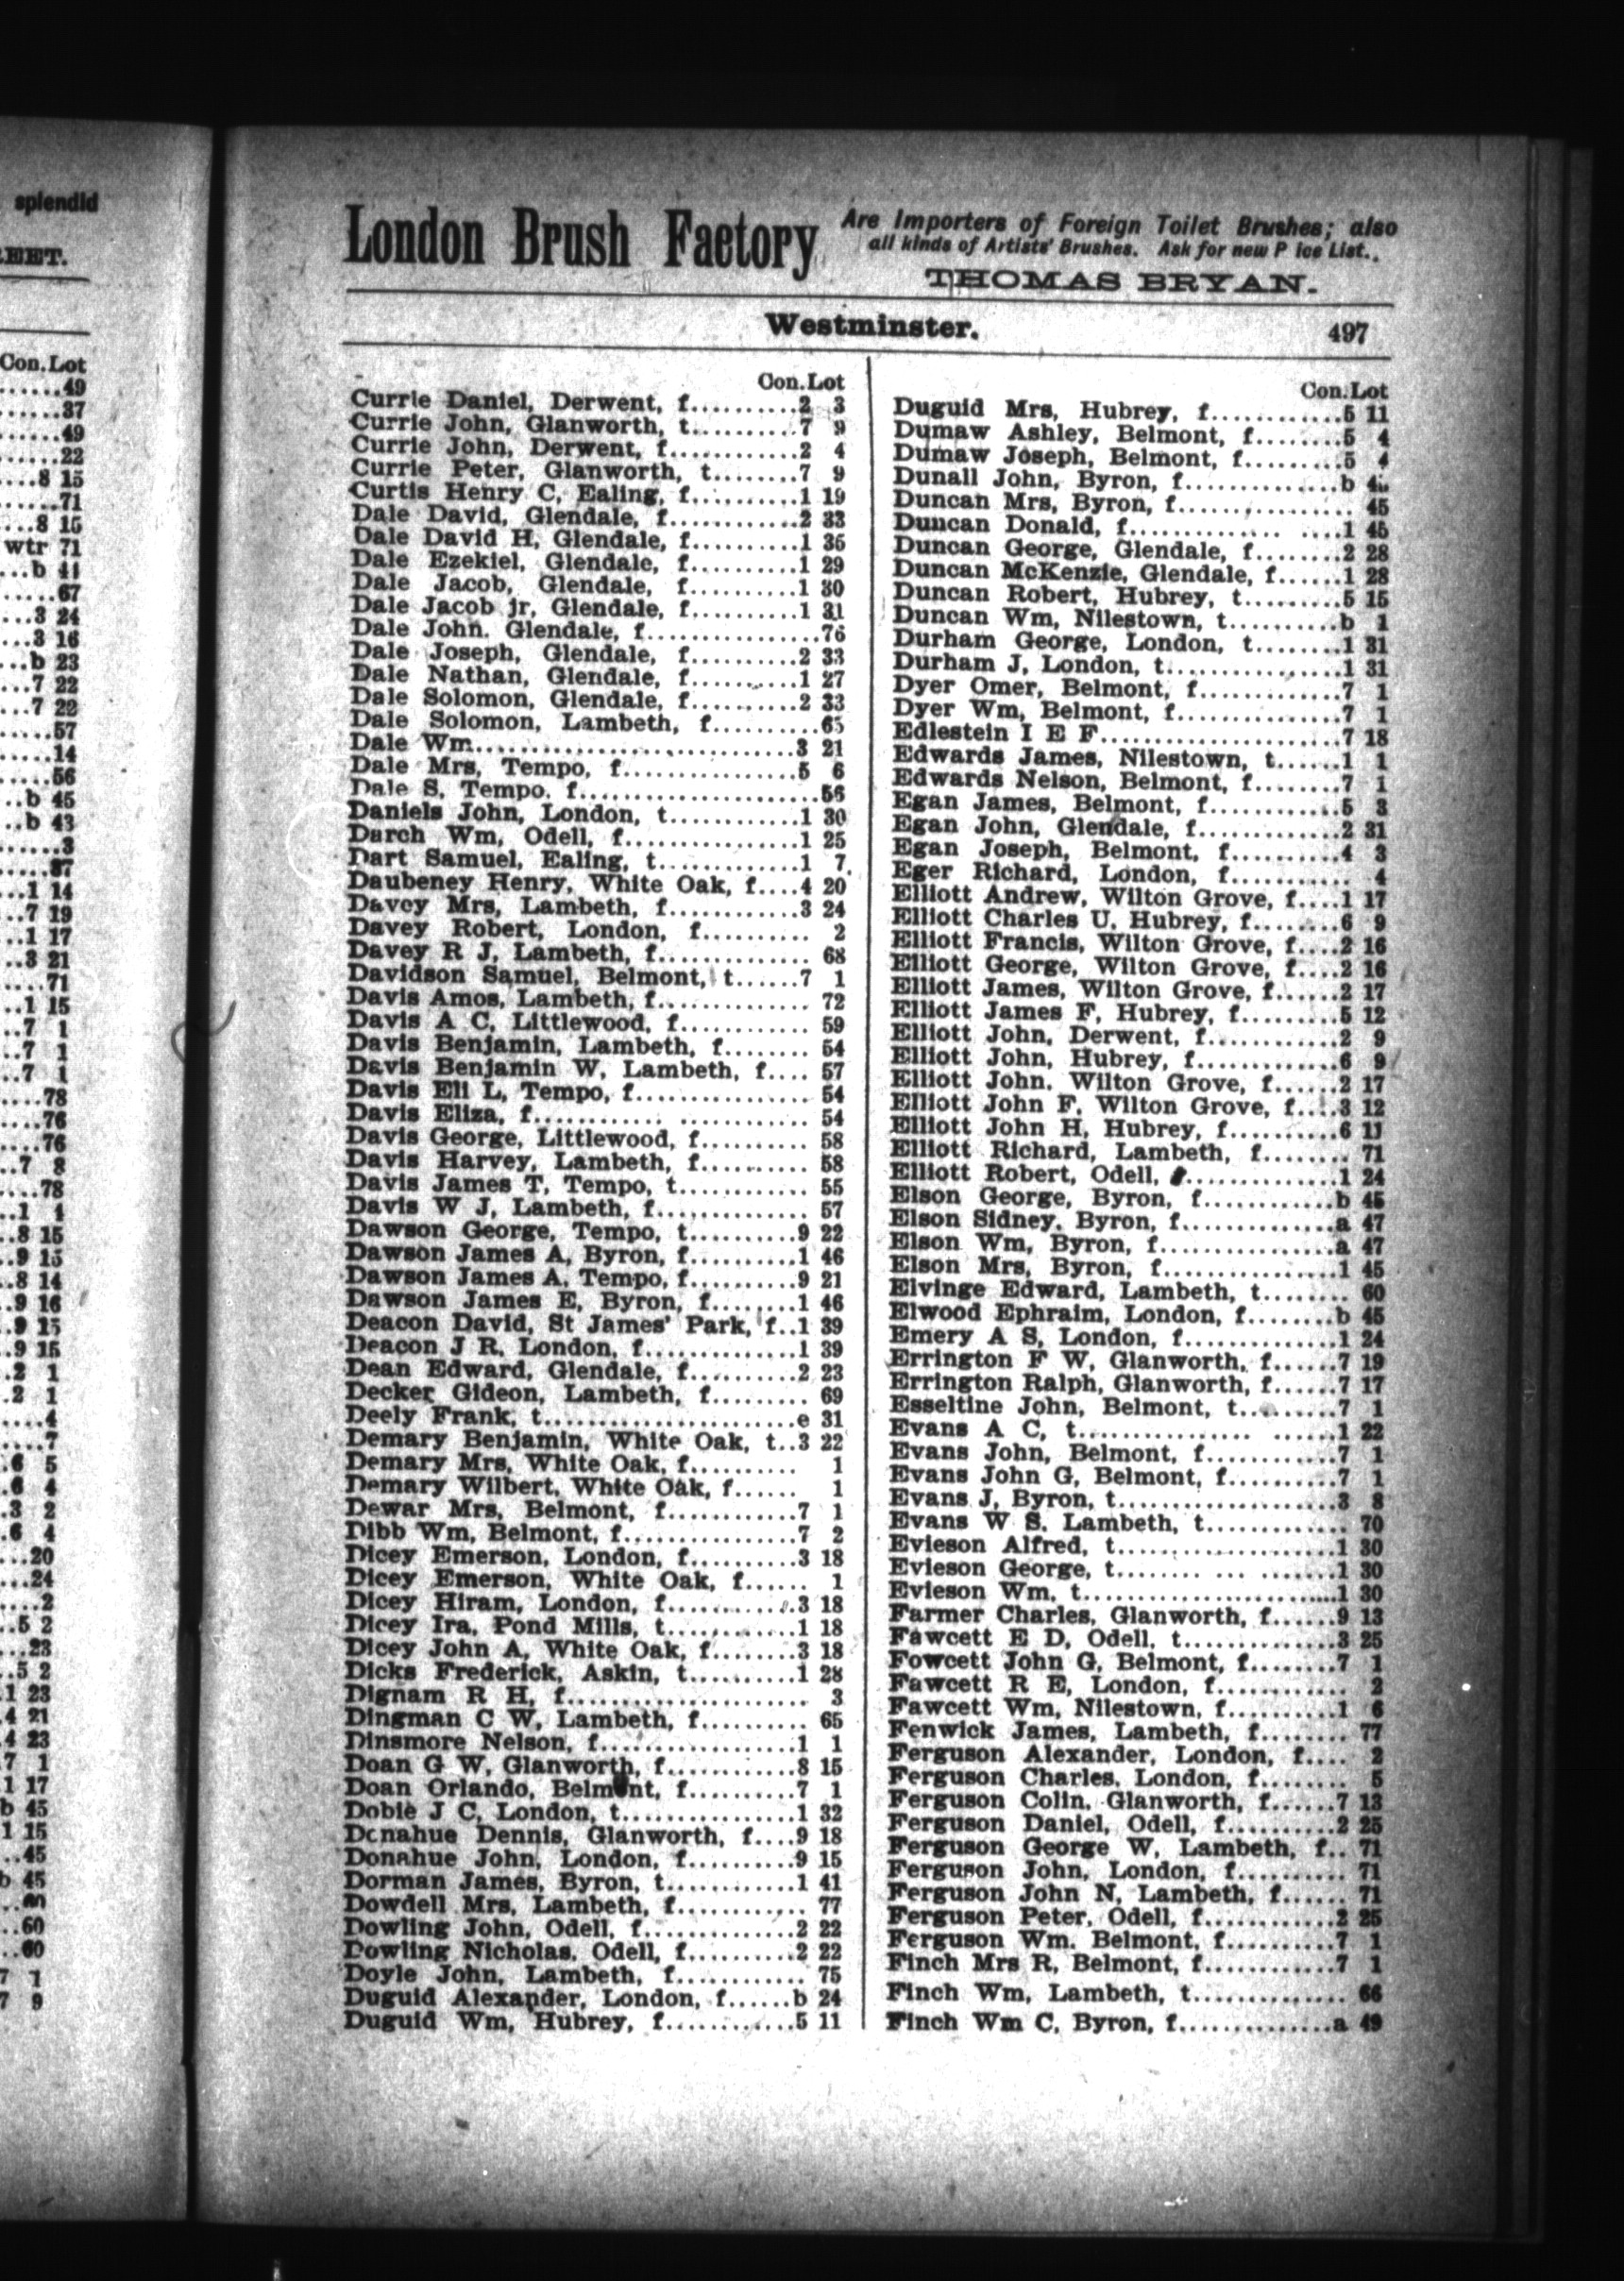 splendid
Con.Lot
......49
......37
......49
......22
....8 15
......71
...8 15
wtr 71
...b 41
......67
...3 24
...3 16
...b 23
...7 22
...7 22
.....57
.....14
.....56
..b 45
..b 43
......3
.....37
...1 14
..7 19
..1 17
..3 21
....71
..1 15
..7 1
..7 1
..7 1
....78
....76
....76
..7 8
....78
..1 1
..8 15
..9 15
..8 14
..9 16
..9 15
..9 15
.2 1
.2 1
....4
....7
.6 5
.6 4
.3 2
.6 4
...20
...24
....2
..5 2
...23
..5 2
.1 23
.4 21
.4 23
7 1
1 17
b 45
1 15
..45
b 45
..60
..60
..60
7 1
7 9
London Brush Factory
Are Importers of Foreign Toilet Brushes; also
all kinds of Artists' Brushes. Ask for new P ice List..
THOMAS BRYAN.
Westminster. 497
Con.Lot
Currie Daniel, Derwent, f..........2 3
Currie John, Glanworth, t..........7 9
Currie John, Derwent, f............2 4
Currie Peter, Glanworth, t........7 9
Curtis Henry C, Ealing, f..........1 19
Dale David, Glendale, f............2 33
Dale David H, Glendale, f..........1 35
Dale Ezekiel, Glendale, f..........1 29
Dale Jacob, Glendale, f..........1 30
Dale Jacob jr, Glendale, f..........1 31
Dale John. Glendale, f................76
Dale Joseph, Glendale, f..........2 33
Dale Nathan, Glendale, f..........1 27
Dale Solomon, Glendale, f..........2 33
Dale Solomon, Lambeth, f..........65
Dale Wm..............................3 21
Dale Mrs, Tempo, f................5 6
Dale S, Tempo. f......................56
Daniels John, London, t............1 30
Darch Wm, Odell, f................1 25
Dart Samuel, Ealing, t............1 7
Daubeney Henry, White Oak, f....4 20
Davey Mrs, Lambeth, f............3 24
Davey Robert, London, f.......... 2
Davey R J, Lambeth, f.............. 68
Davidson Samuel, Belmont, t......7 1
Davis Amos, Lambeth, f.............. 72
Davis A C, Littlewood, f............ 59
Davis Benjamin, Lambeth, f........ 54
Davis Benjamin W, Lambeth, f.... 57
Davis Eli L, Tempo, f................ 54
Davis Eliza, f.......... ............ 54
Davis George, Littlewood, f.......... 58
Davis Harvey, Lambeth, f.......... 58
Davis James T, Tempo, t............ 55
Davis W J, Lambeth, f.............. 57
Dawson George, Tempo, t..........9 22
Dawson James A, Byron, f..........1 46
Dawson James A, Tempo, f..........9 21
Dawson James E, Byron, f..........1 46
Deacon David, St James' Park, f..1 39
Deacon J R, London, f..............1 39
Dean Edward, Glendale, f..........2 23
Decker Gideon, Lambeth, f.......... 69
Deely Frank, t........................e 31
Demary Benjamin, White Oak, t..3 22
Demary Mrs, White Oak, f.......... 1
Demary Wilbert, White Oak, f...... 1
Dewar Mrs, Belmont, f............7 1
Dibb Wm, Belmont, f................7 2
Dicey Emerson, London, f..........3 18
Dicey Emerson, White Oak, f...... 1
Dicey Hiram, London, f............3 18
Dicey Ira, Pond Mills, t............1 18
Dicey John A, White Oak, f........3 18
Dicks Frederick, Askin, t..........1 28
Dignam R H, f........................ 3
Dingman C W, Lambeth, f.......... 65
Dinsmore Nelson, f..................1 1
Doan G W, Glanworth, f............8 15
Doan Orlando, Belmont, f..........7 1
Dobie J C, London, t................1 32
Donahue Dennis, Glanworth, f....9 18
Donahue John, London, f..........9 15
Dorman James, Byron, t............1 41
Dowdell Mrs, Lambeth, f............ 77
Dowling John, Odell, f..............2 22
Dowling Nicholas, Odell, f..........2 22
Doyle John, Lambeth, f............ 75
Duguid Alexander, London, f......b 24
Duguid Wm, Hubrey, f............5 11
Con.Lot
Duguid Mrs, Hubrey, f............5 11
Dumaw Ashley, Belmont, f........5 4
Dumaw Joseph, Belmont, f.........5 4
Dunall John, Byron, f..............b
Duncan Mrs, Byron, f................ 45
Duncan Donald, f.............. ....1 45
Duncan George, Glendale, f........2 28
Duncan McKenzie, Glendale, f......1 28
Duncan Robert, Hubrey, t..........5 15
Duncan Wm, Nilestown, t..........b 1
Durham George, London, t........1 31
Durham J, London, t................1 31
Dyer Omer, Belmont, f............7 1
Dyer Wm, Belmont, f..............7 1
Edlestein I E F......................7 18
Edwards James, Nilestown, t......1 1
Edwards Nelson, Belmont, f........7 1
Egan James, Belmont, f............5 3
Egan John, Glendale, f............2 31
Egan Joseph, Belmont, f..........4 3
Eger Richard, London, f.......... 4
Elliott Andrew, Wilton Grove, f....1 17
Elliott Charles U, Hubrey, f........6 9
Elliott Francis, Wilton Grove, f....2 16
Elliott George, Wilton Grove, f....2 16
Elliott James, Wilton Grove, f......2 17
Elliott James F, Hubrey, f..........5 12
Elliott John, Derwent, f............2 9
Elliott John, Hubrey, f............6 9
Elliott John, Wilton Grove, f......2 17
Elliott John F, Wilton Grove, f....3 12
Elliott John H, Hubrey, f..........6 11
Elliott Richard, Lambeth, f........ 71
Elliott Robert, Odell, f..............1 24
Elson George, Byron, f............b 45
Elson Sidney, Byron, f..............a 47
Elson Wm, Byron, f................a 47
Elson Mrs, Byron, f................1 45
Elvinge Edward, Lambeth, t........ 60
Elwood Ephraim, London, f........b 45
Emery A S, London, f..............1 24
Errington F W, Glanworth, f......7 19
Errington Ralph, Glanworth, f......7 17
Esseltine John, Belmont, t..........7 1
Evans A C, t................ ......1 22
Evans John, Belmont, f............7 1
Evans John G, Belmont, f..........7 1
Evans J, Byron, t....................3 8
Evans W S. Lambeth, t.............. 70
Evieson Alfred, t....................1 30
Evieson George, t........ ... .......1 30
Evieson Wm, t........................1 30
Farmer Charles, Glanworth, f......9 13
Fawcett E D, Odell, t..............3 25
Fowcett John G, Belmont, f........7 1
Fawcett R E, London, f............ 2
Fawcett Wm, Nilestown, f..........1 6
Fenwick James, Lambeth, f........ 77
Ferguson Alexander, London, f.... 2
Ferguson Charles, London, f........ 5
Ferguson Colin, Glanworth, f......7 13
Ferguson Daniel, Odell, f..........2 25
Ferguson George W, Lambeth, f.. 71
Ferguson John, London, f.......... 71
Ferguson John N, Lambeth, f...... 71
Ferguson Peter, Odell, f............2 25
Ferguson Wm. Belmont, f..........7 1
Finch Mrs R, Belmont, f............7 1
Finch Wm, Lambeth, t.............. 66
Finch Wm C, Byron, f..............a 49